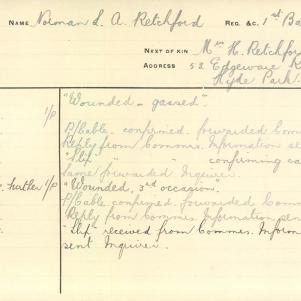 NAME Norman L. A. Retchford REG. &C. 1st Ba
NEXT OF KIN Mrs H. Retchfor
ADDRESS 52 Edgeware R
Hyde Park.
"Wounded - gassed".
1/P
P/Cable confirmed. forwarded Com
Reply from Commes. Information se
"Slip" " " confirming ca
Same forwarded Inquirer.
further 1/P "Wounded, 3rd occasion."
P/Cable confirmed. forwarded Comm
Reply from Commes. Information pen
"Slip" received from Commes. Inform
sent Inquirer.